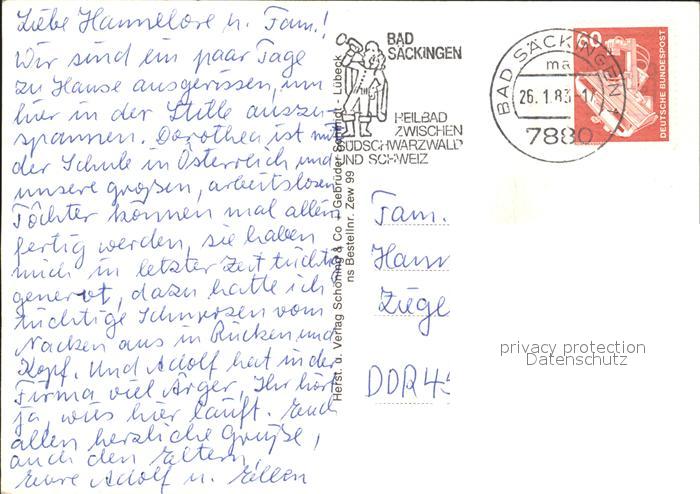 Liebe Hannelore u. Fam.!
Wir sind ein paar Tage
zu Hause ausgerissen, um
hier in der Stille auszu-
spannen. Dorothea ist mit
der Schule in Österreich und
unsere großen, arbeitslosen
Töchter können mal allein
fertig werden, sie haben
mich in letzter Zeit tüchtig
genervt, dazu hatte ich
tüchtige Schmerzen vom
Nacken aus in Rücken und
Kopf. Und Adolf hat in der
Firma viel Ärger, Ihr hört
ja, was hier läuft. Euch
allen herzliche Grüße,
auch den Eltern,
Eure Adolf u. Ellen
Herst. u. Verlag Schöning & Co + Gebrüder Schmidt, Lübeck
ns Bestellnr. Zew 99
BAD
SÄCKINGEN
HEILBAD
ZWISCHEN
ÜDSCHWARZWALD
UND SCHWEIZ
BAD SÄCKINGEN
ma
26.1.83-17
7880
60
DEUTSCHE BUNDESPOST
Fam.
Hann
Ziege
DDR 45
privacy protection
Datenschutz